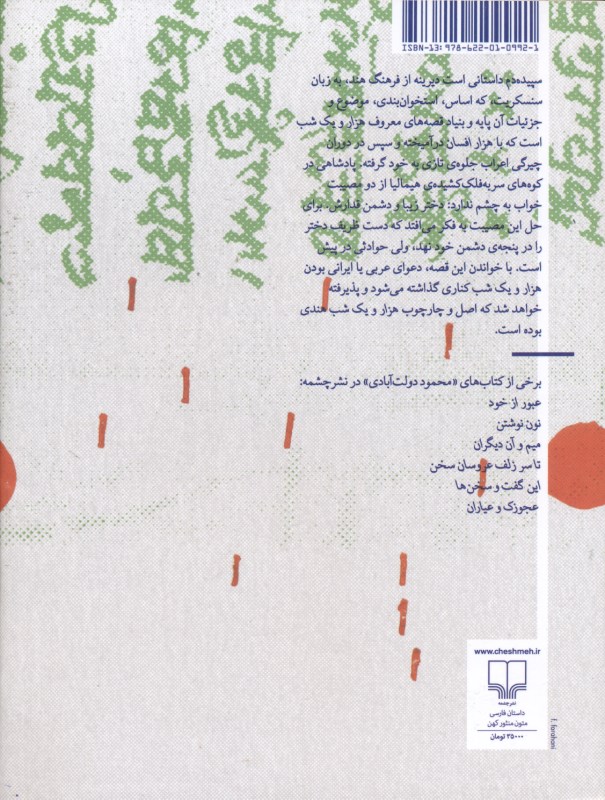 ISBN-13: 978-622-01-0992-1
سپیده‌دم داستانی است دیرینه از فرهنگ هند، به زبان
سنسکریت، که اساس، استخوان‌بندی، موضوع و
جزئیات آن پایه و بنیاد قصه‌های معروف هزار و یک شب
است که با هزار افسان درآمیخته و سپس در دوران
چیرگی اعراب جلوه‌ی تازی به خود گرفته. پادشاهی در
کوه‌های سربه‌فلک‌کشیده‌ی هیمالیا از دو مصیبت
خواب به چشم ندارد: دختر زیبا و دشمن قدارش. برای
حل این مصیبت به فکر می‌افتد که دست ظریف دختر
را در پنجه‌ی دشمن خود نهد، ولی حوادثی در پیش
است. با خواندن این قصه، دعوای عربی یا ایرانی بودن
هزار و یک شب کناری گذاشته می‌شود و پذیرفته
خواهد شد که اصل و چارچوب هزار و یک شب هندی
بوده است.
برخی از کتاب‌های «محمود دولت‌آبادی» در نشرچشمه:
عبور از خود
نون نوشتن
میم و آن دیگران
تا سر زلف عروسان سخن
این گفت و سخن‌ها
عجوزک و عیاران
www.cheshmeh.ir
نشرچشمه
داستان فارسی
متون منثور کهن
۲۵۰۰۰ تومان
f. forahani